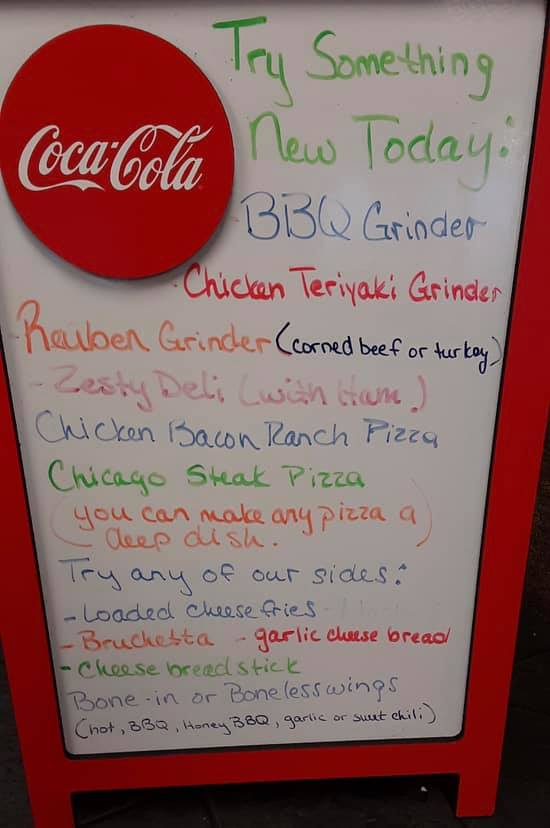 Coca-Cola
Try Something
New Today:
BBQ Grinder
Chicken Teriyaki Grinder
- Reuben Grinder (corned beef or turkey)
- Zesty Deli (with Ham.)
Chicken Bacon Ranch Pizza
Chicago Steak Pizza
(you can make any pizza a
deep dish.)
Try any of our sides:
- Loaded cheese fries
- Bruchetta - garlic cheese bread
- Cheese breadstick
Bone-in or Boneless wings
(hot, BBQ, Honey BBQ, garlic or sweet chili)